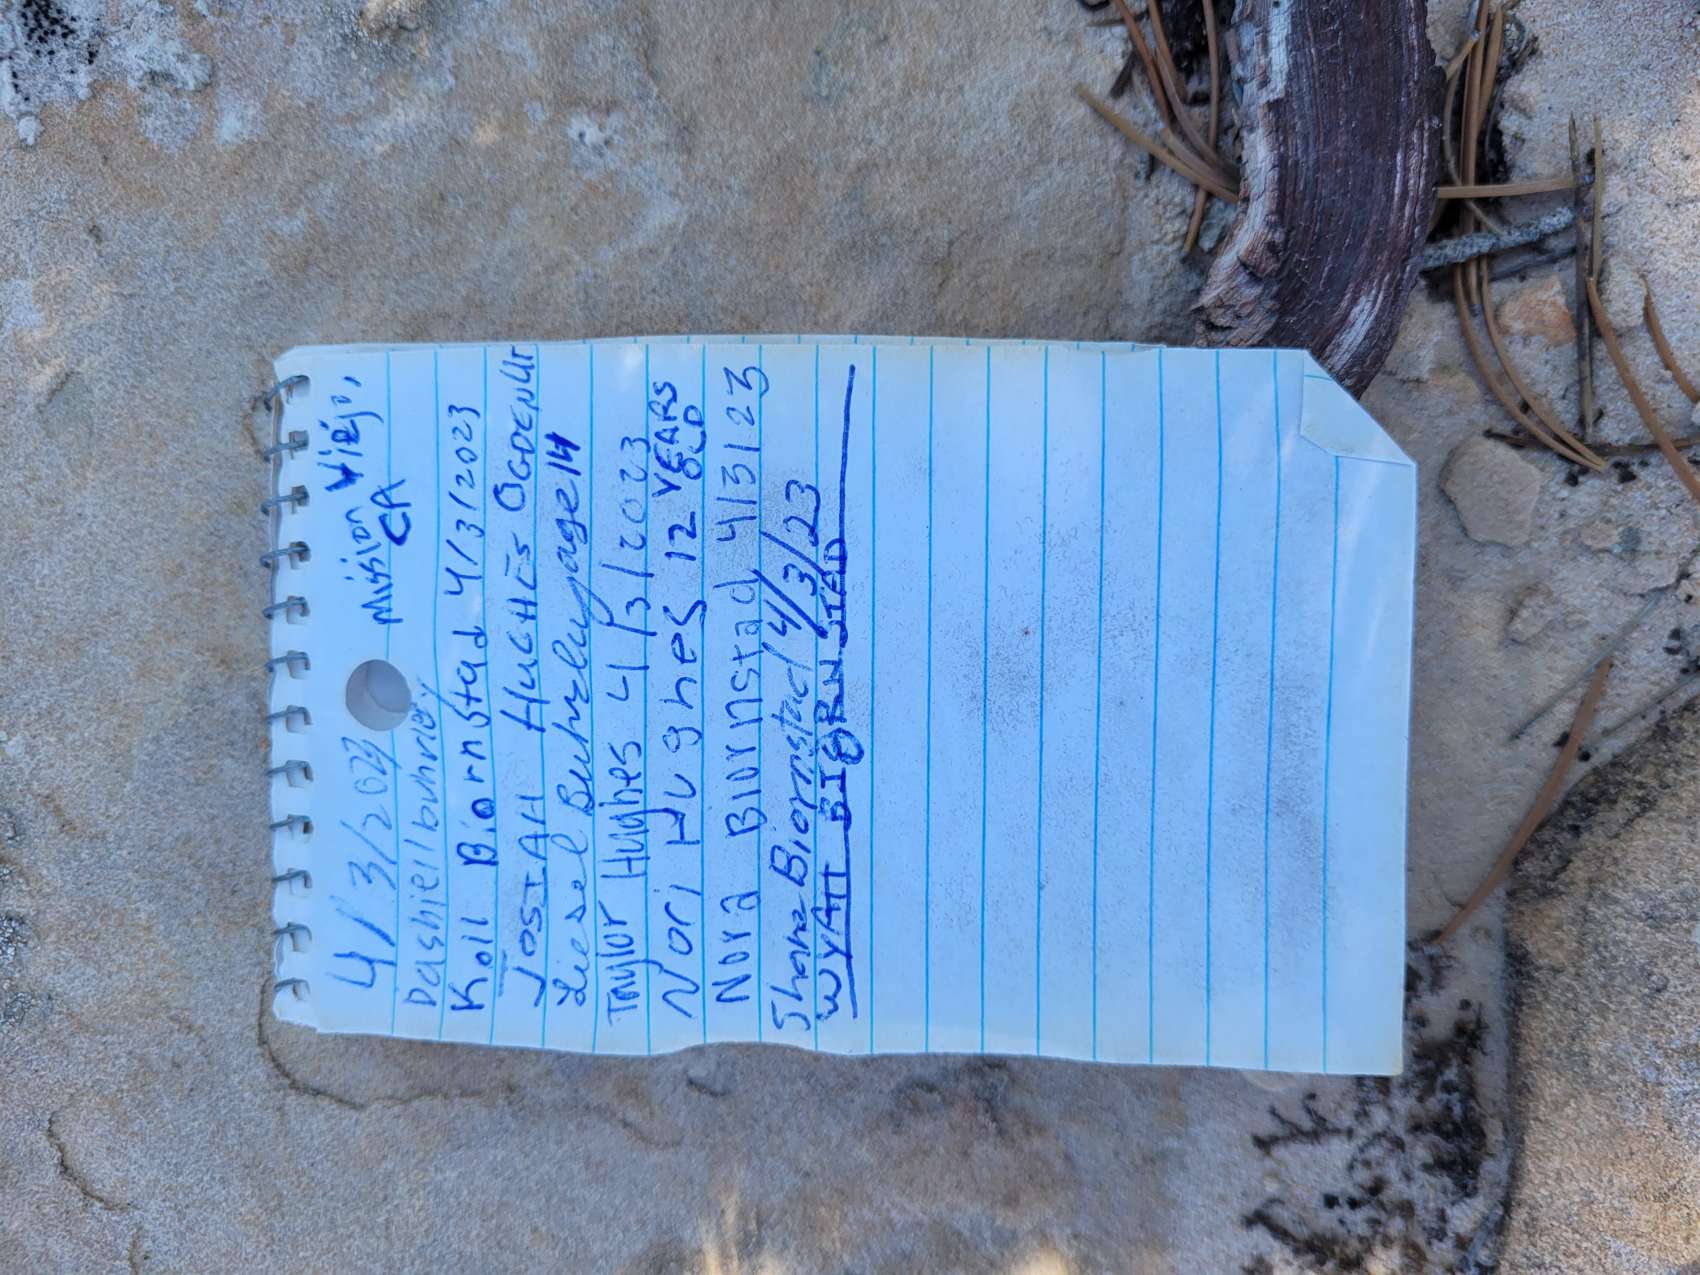 4/3/2023 Mission Viejo,
CA
Dashiell buhrley
Koil Biornstad 4/3/2023
JOSIAH HUGHES OGDEN UT
Liesel Buhrley age 14
Taylor Hughes 4/3/2023
Nori Hughes 12 YEARS
OLD
Nora Biornstad 4/3/23
Shana Biornstad 4/3/23
WYATT BIORNSTAD